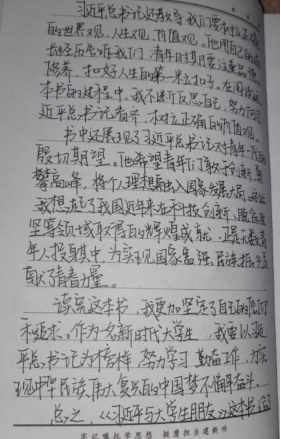 习近平总书记还教导我们要树立正确
的世界观,人生观,价值观。他用自己的成
长经历告诉我们,青年时期要注重品德
修养,扣好人生的第一粒扣子。在阅读这
本书的过程中,我不断反思自己,努力向习
近平总书记看齐,树立正确的价值观。
书中还展现了习近平总书记对青年一代的
殷切期望。他希望青年们敢于创新,勇
攀高峰,将个人理想融入国家发展大局。这让
我想起了我国近年来在科技创新、脱贫攻
坚等领域取得的辉煌成就,正是无数青
年人投身其中,为实现国家富强民族振兴贡
献了青春力量。
读完这本书,我更加坚定了自己的
和追求。作为一名新时代大学生,我要以习近
平总书记为榜样,努力学习,勤奋工作,为实
现中华民族伟大复兴的中国梦不懈奋斗。
总之,《习近平与大学生朋友》这本书
牢记嘱托学思想 挺膺担当建新功